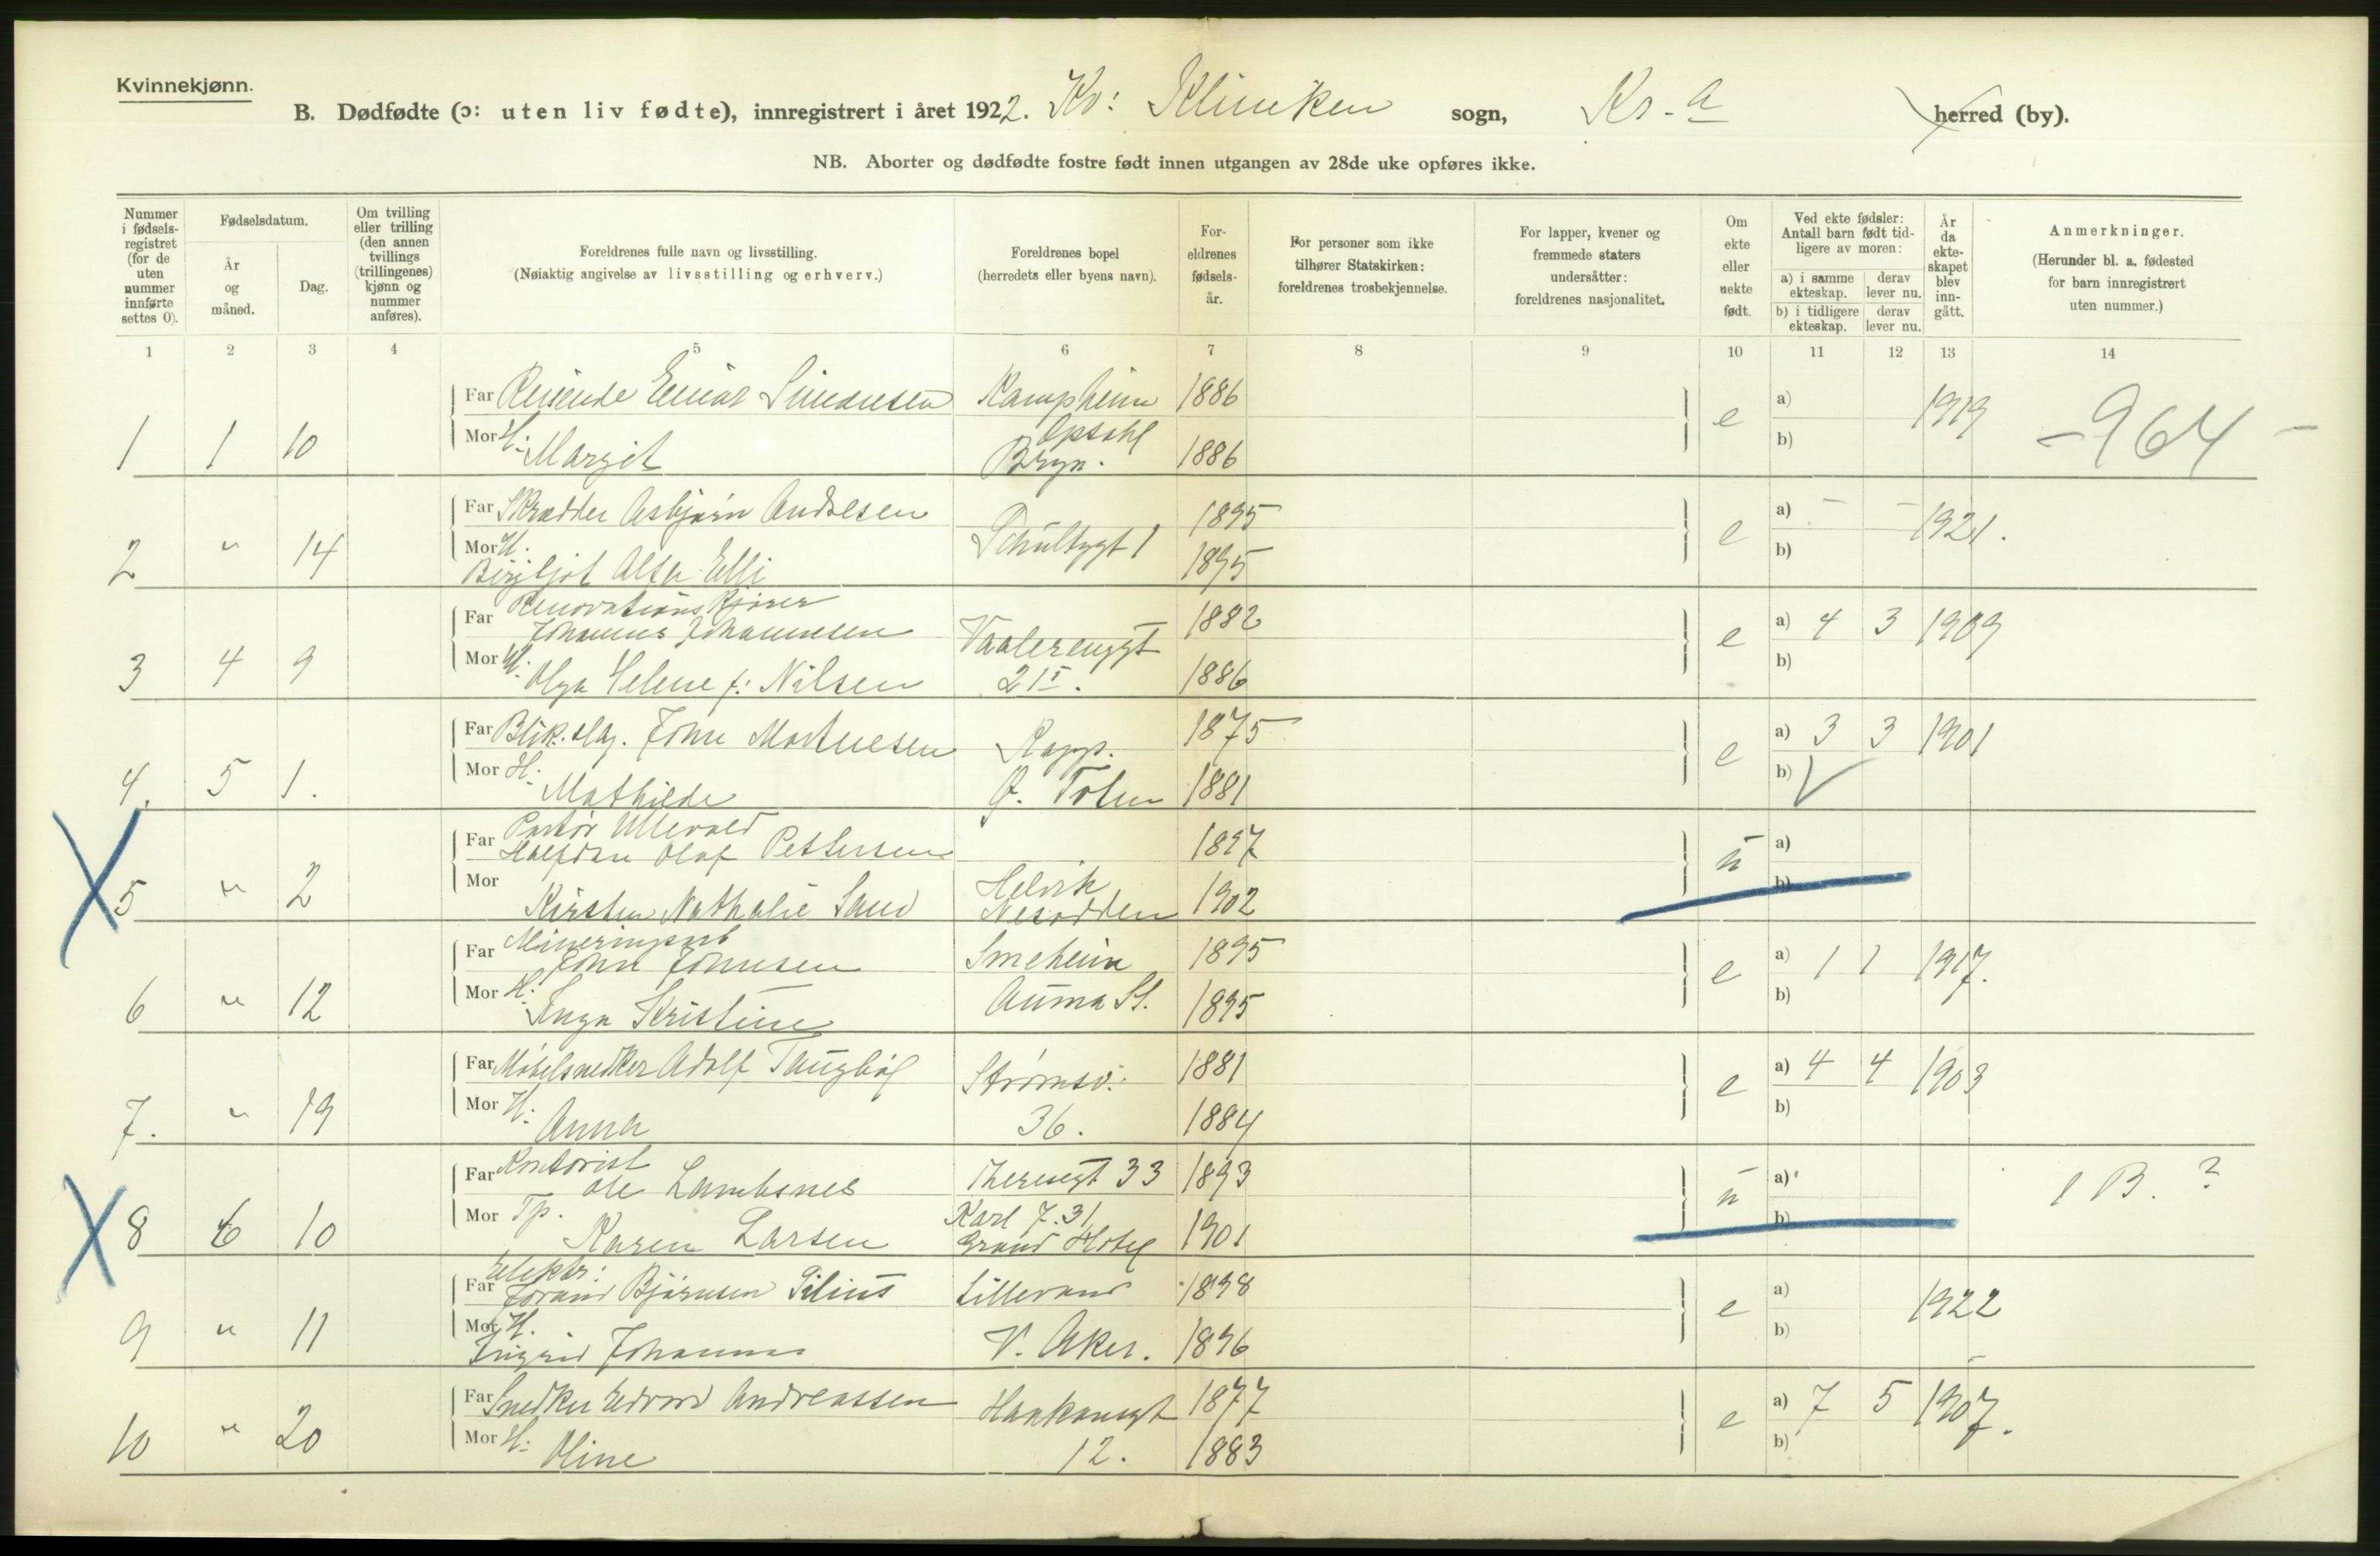 Kvinnekjønn.
B. Dødfødte (ɔ: uten liv fødte), innregistrert i året 1922. Kv: Kliniken sogn, Kr.a herred (by).
NB. Aborter og dødfødte fostre født innen utgangen av 28de uke opføres ikke.
Nummer i fødselsregistret (for de uten nummer innførte settes 0).
Fødselsdatum.
År og måned.
Dag.
Om tvilling eller trilling (den annen tvillings (trillingenes) kjønn og nummer anføres).
Foreldrenes fulle navn og livsstilling.
(Nøiaktig angivelse av livsstilling og erhverv.)
Foreldrenes bopel
(herredets eller byens navn).
Foreldrenes fødselsår.
For personer som ikke tilhører Statskirken: foreldrenes trosbekjennelse.
For lapper, kvener og fremmede staters undersåtter: foreldrenes nasjonalitet.
Om ekte eller uekte født.
Ved ekte fødsler: Antall barn født tidligere av moren:
a) i samme ekteskap. derav lever nu.
b) i tidligere ekteskap. derav lever nu.
År da ekteskapet blev inngått.
Anmerkninger.
(Herunder bl. a. fødested for barn innregistrert uten nummer.)
1 2 3 4 5 6 7 8 9 10 11 12 13 14
Far Reisende Einar Simonsen Kampheim 1886 e a) 1919 - 964 -
1 1 10 Mor H. Margit Opsahl Bryn. 1886 b)
Far Skrædder Asbjørn Andresen Schultzgt 1 1895 e a) - - 1921.
2 " 14 Mor H. Birgljot Alfa Elli 1895 b)
Far Renovationskjører
Johannes Johannesen Vaalerenggt 1882 e a) 4 3 1909
3 4 9 Mor H. Olga Helene f: Nilsen 21 I. 1886 b)
Far Blik.slag. John Mortensen Kapp. 1875 e a) 3 3 1901
4. 5 1. Mor H. Mathilde Ø. Toten 1881 b)
Far Portør Ullevold
Halfdan Olaf Pettersen 1897 u a)
5 " 2 Mor Kirsten Nathalie Sand Helvik Nesodden 1902 b)
Far Mineringsarb
John Johnsen Smeheim 1895 e a) 1 1 1917.
6 " 12 Mor H. Inga Kristine Auma St. 1895 b)
Far Møbelsnedker Adolf Taugbøl Strømsv: 1881 e a) 4 4 1903
7. " 19 Mor H. Anna 36. 1884 b)
Far Kontorist
Ole Lambsnes Theresegt 33 1893 u a) 1 B. ?
8 6 10 Mor Tp. Karen Larsen Karl J. 31 Grand Hotel 1901 b)
Far Elektr:
Bjørnsen Lillevand 1898 e a) 1922
9 " 11 Mor H. Ingrid Johanne V. Aker. 1896 b)
Far Snedker Edvard Andreassen Haakonsgt 1877 e a) 7 5 1907.
10 " 20 Mor H. Oline 12. 1883 b)